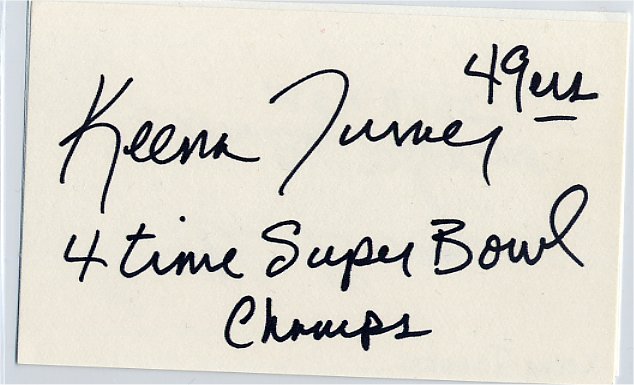 49ers
Keena Turner
4 time Super Bowl
Champs